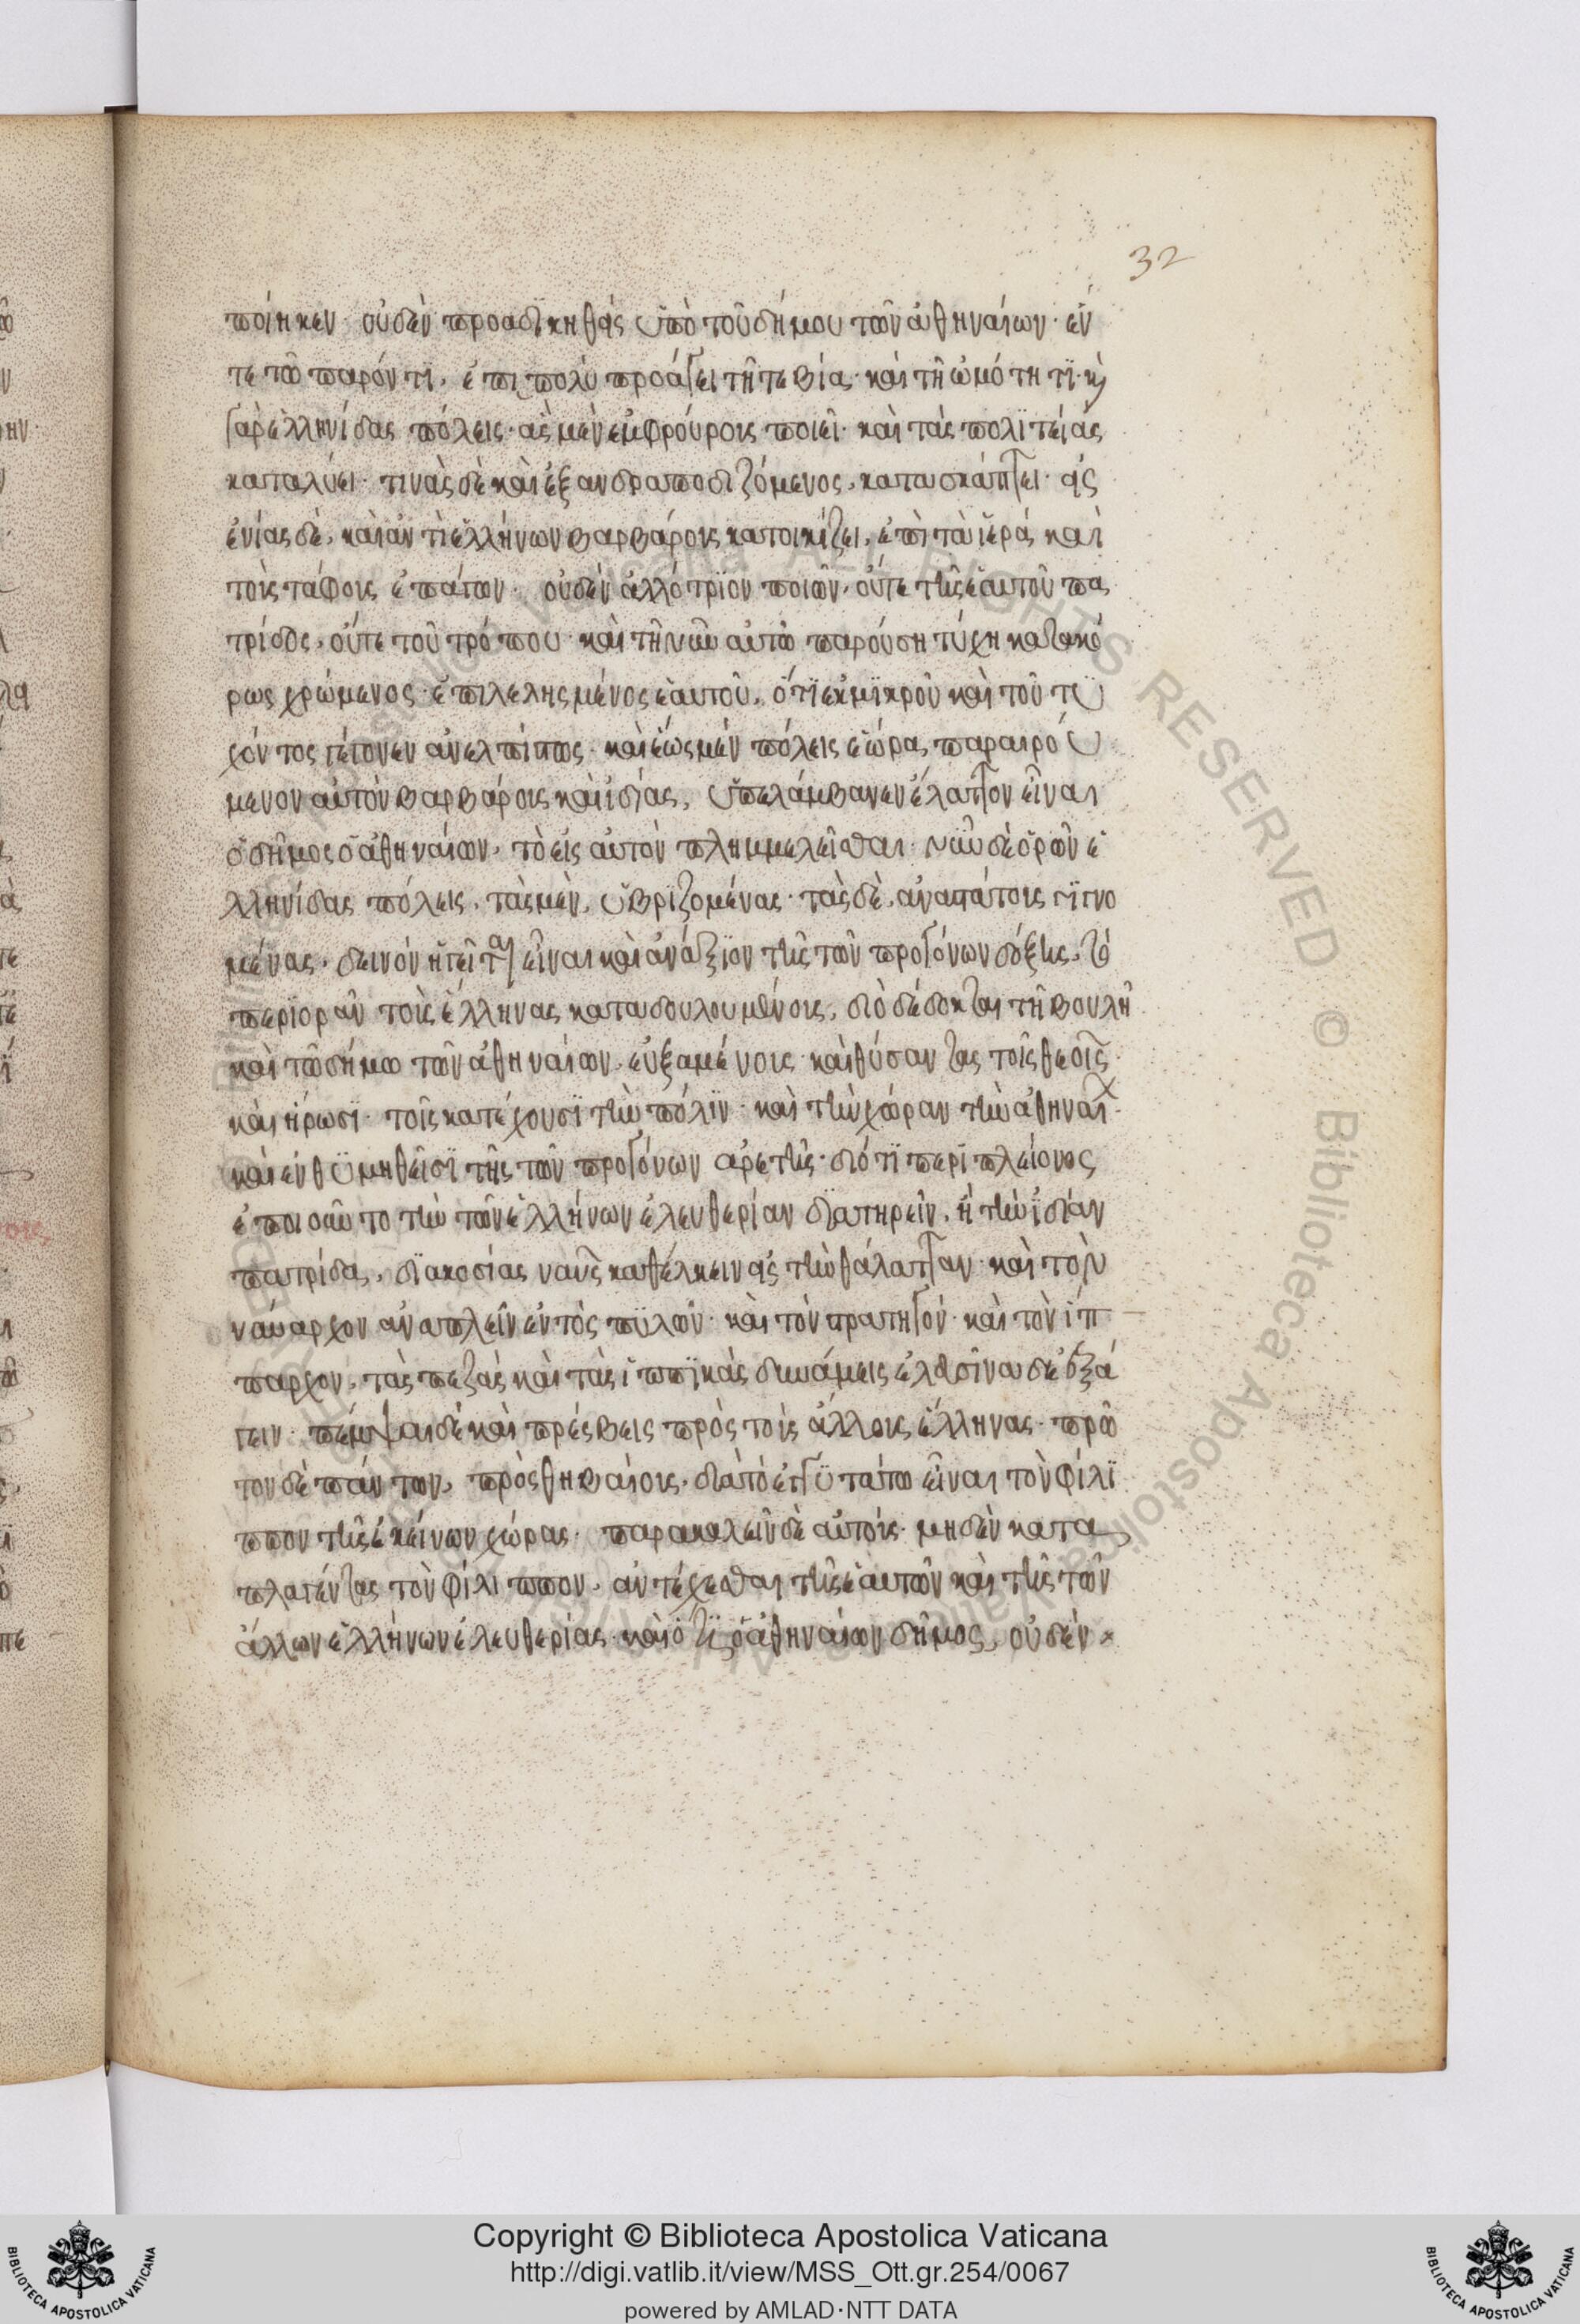 32
ποίηκεν· οὐδὲν προαδικηθεὶς ὑπὸ τοῦ δήμου τῶν ἀθηναίων· ἔν
τε τῶ παρόντι, ἐπιπολὺ προάγει τῆ τε βία· καὶ τῆ ὠμότητι· κ
γὰρ ἑλληνίδας πόλεις· ἃς μὲν ἐμφρούρους ποιεῖ· καὶ τὰς πολιτείας
καταλύει· τινὰς δὲ καὶ ἐξανδραποδιζόμενος, κατασκάπτει· εἰς
ἐνίας δὲ, καὶ ἀντὶ ἑλλήνων βαρβάρους κατοικίζει, ἐπὶ τὰ ἱερὰ καὶ
τοὺς τάφους ἐπάγων· οὐδὲν ἀλλότριον ποιῶν, οὔτε τῆς ἑαυτοῦ πα
τρίδος, οὔτε τοῦ τρόπου· καὶ τῆ νῦν αὐτῶ παρούση τύχη κατακό
ρως χρώμενος· ἐπιλελησμένος ἑαυτοῦ, ὅτι ἐκ μικροῦ καὶ τοῦ τυ
χόντος γέγονεν ἀνελπίστως· καὶ ἕως μὲν πόλεις ἑώρα παραιρού
μενον αὐτὸν βαρβάρους καὶ ἰδίας, ὑπελάμβανεν ἔλαττον εἶναι
ὁ δῆμος ὁ ἀθηναίων, τὸ εἰς αὐτὸν πλημμελεῖσθαι· νῦν δὲ ὁρῶν ἑ
λληνίδας πόλεις, τὰς μὲν, ὑβριζομένας· τὰς δὲ, ἀναστάτους γινο
μένας, δεινὸν ἡγεῖται εἶναι καὶ ἀνάξιον τῆς τῶν προγόνων δόξης, τὸ
περιορᾶν τοὺς ἕλληνας καταδουλουμένους, διὸ δέδοκται τῆ βουλῆ
καὶ τῶ δήμω τῶν ἀθηναίων, εὐξαμένους καὶ θύσαντας τοῖς θεοῖς
καὶ ἥρωσι· τοῖς κατέχουσι τὴν πόλιν· καὶ τὴν χώραν τὴν ἀθηναι
καὶ ἐνθυμηθεῖσι τῆς τῶν προγόνων ἀρετῆς· διότι περὶ πλείονος
ἐποιοῦντο τὴν τῶν ἑλλήνων ἐλευθερίαν διατηρεῖν, ἢ τὴν ἰδίαν
πατρίδα, διακοσίας ναῦς καθέλκειν εἰς τὴν θάλατταν· καὶ τὸν
ναύαρχον ἀναπλεῖν ἐντὸς πυλῶν· καὶ τὸν στρατηγὸν· καὶ τὸν ἵπ
παρχον, τὰς πεζὰς καὶ τὰς ἱππικὰς δυνάμεις ἐλευσῖνα δὲ ἐξά
γειν· πέμψαι δὲ καὶ πρέσβεις πρὸς τοὺς ἄλλους ἕλληνας· πρῶ
τον δὲ πάντων, πρὸς θηβαίους, διὰ τὸ ἐγγυτάτω εἶναι τὸν φίλι
ππον τῆς ἐκείνων χώρας· παρακαλεῖν δὲ αὐτοὺς· μηδὲν κατα
πλαγέντας τὸν φίλιππον, ἀντέχεσθαι τῆς ἑαυτῶν καὶ τῆς τῶν
ἄλλων ἑλλήνων ἐλευθερίας· καὶ ὅτι ὁ ἀθηναίων δῆμος, οὐδὲν
Copyright © Biblioteca Apostolica Vaticana
http://digi.vatlib.it/view/MSS_Ott.gr.254/0067
powered by AMLAD·NTT DATA